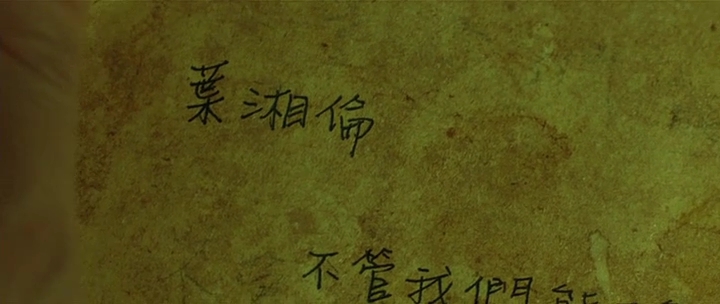 葉湘倫
不管我們能